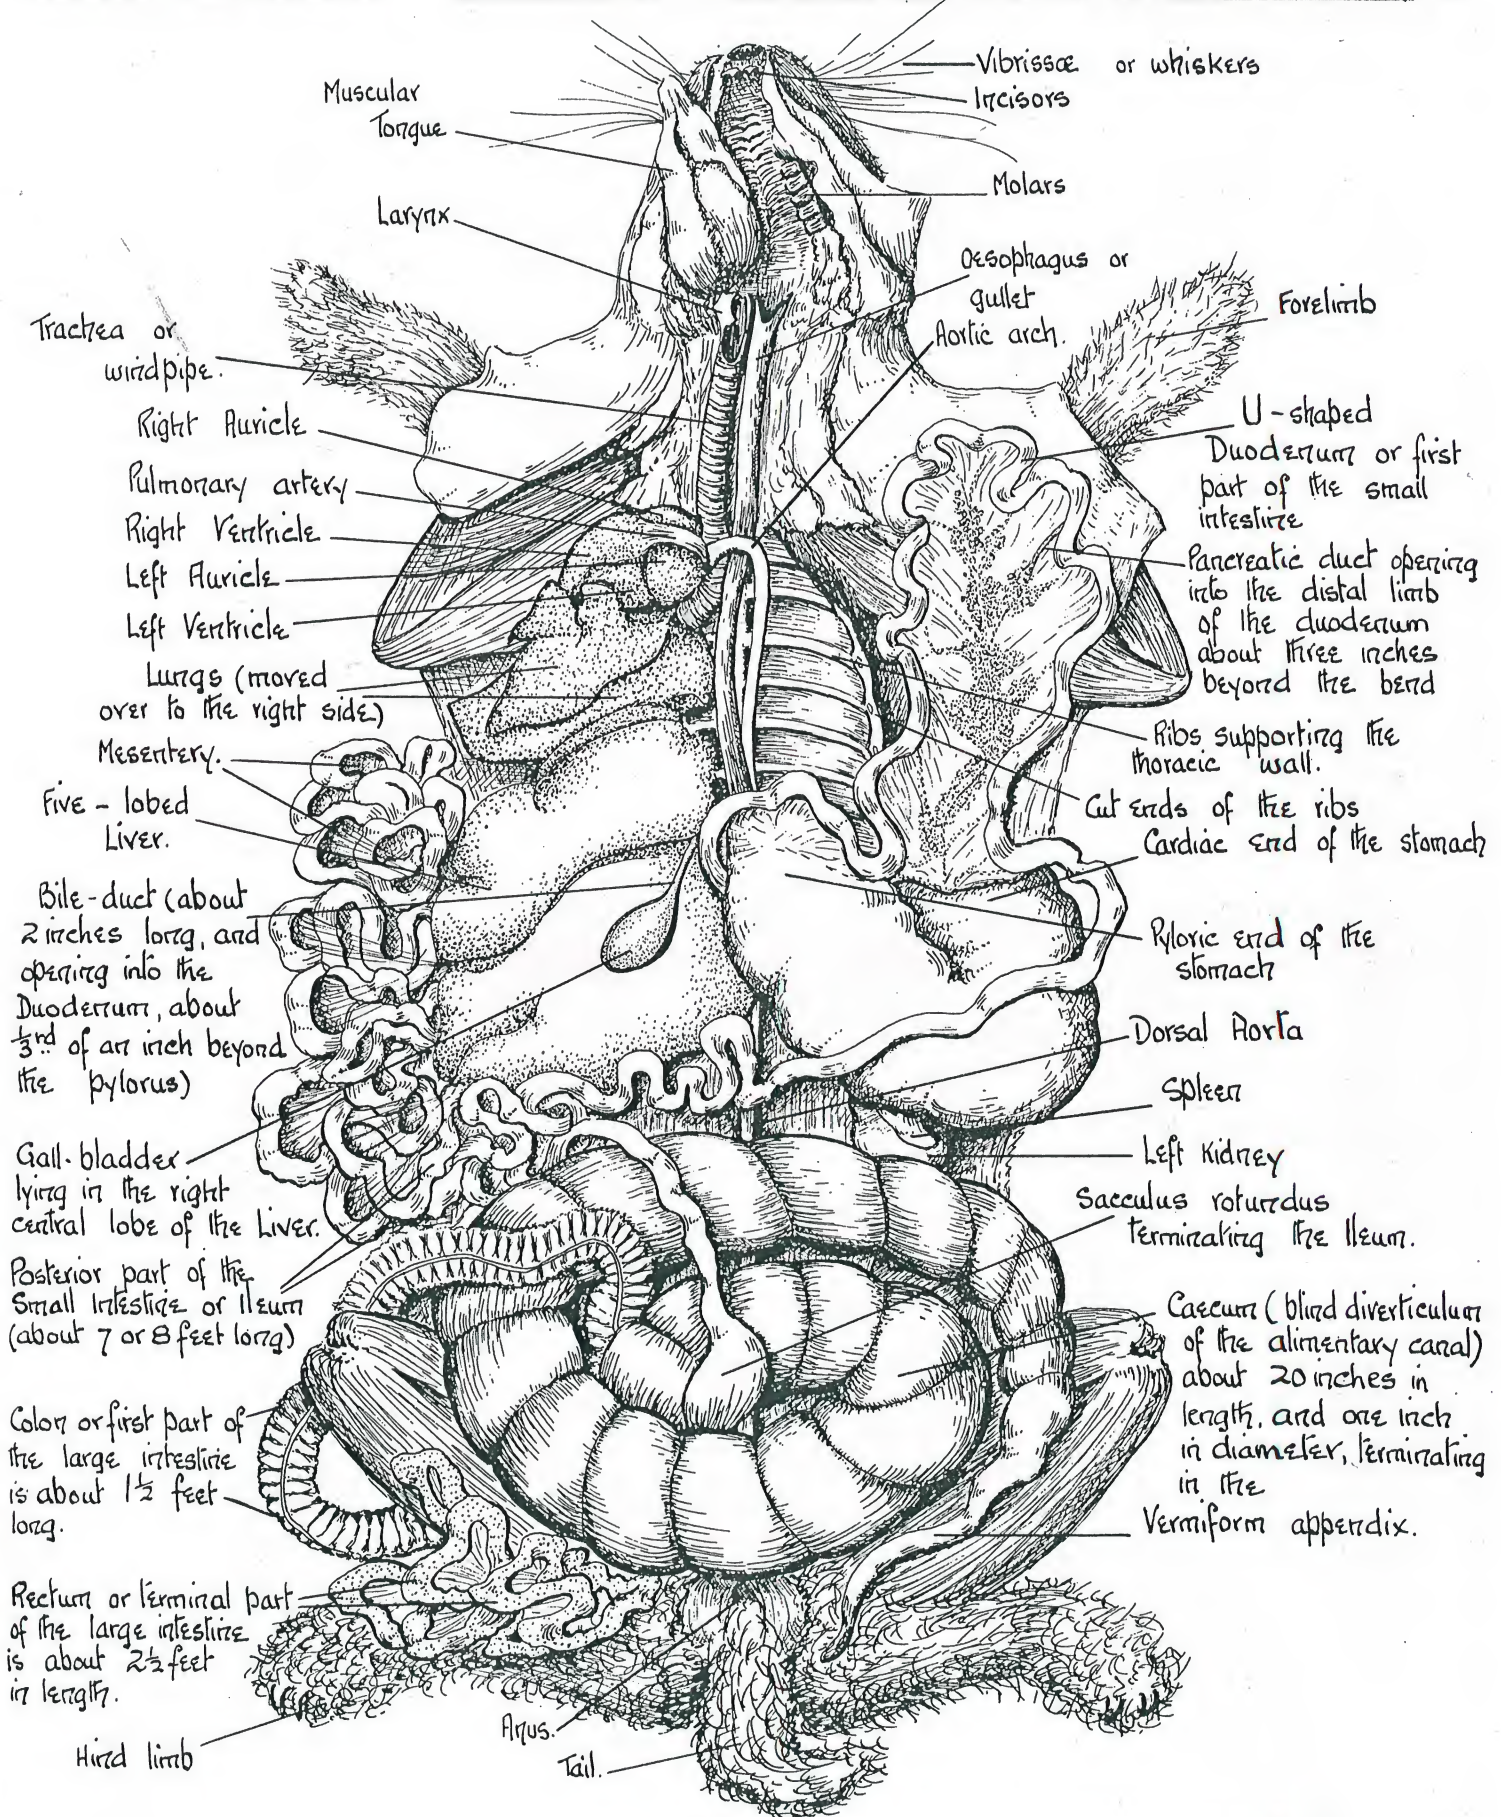 Vibrissæ or whiskers
Incisors
Muscular
Tongue
Molars
Larynx
Oesophagus or
gullet
Aortic arch.
Forelimb
Trachea or
windpipe.
Right Auricle
Pulmonary artery
Right Ventricle
Left Auricle
Left Ventricle
Lungs (moved
over to the right side)
Mesentery.
Five-lobed
Liver.
Bile-duct (about
2 inches long, and
opening into the
Duodenum, about
⅓rd of an inch beyond
the pylorus)
Gall-bladder
lying in the right
central lobe of the Liver.
Posterior part of the
Small Intestine or Ileum
(about 7 or 8 feet long)
Colon or first part of
the large intestine
is about 1½ feet
long.
Rectum or terminal part
of the large intestine
is about 2½ feet
in length.
Hind limb
Anus.
Tail.
U-shaped
Duodenum or first
part of the small
intestine
Pancreatic duct opening
into the distal limb
of the duodenum
about three inches
beyond the bend
Ribs supporting the
thoracic wall.
Cut ends of the ribs
Cardiac end of the stomach
Pyloric end of the
stomach
Dorsal Aorta
Spleen
Left Kidney
Sacculus rotundus
terminating the Ileum.
Caecum (blind diverticulum
of the alimentary canal)
about 20 inches in
length, and one inch
in diameter, terminating
in the
Vermiform appendix.